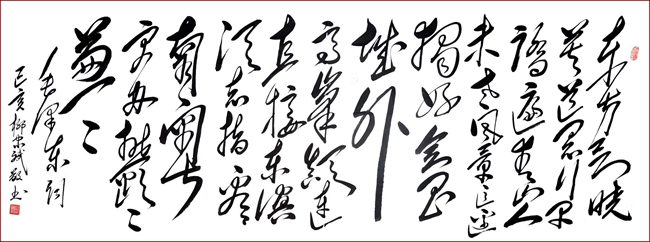 东方欲晓
莫道君行早
踏遍青山人
未老风景这边
独好会昌
城外
高峰颠连
直接东溟
战士指看
南粤
更加郁郁
葱葱
毛泽东词
己亥 书